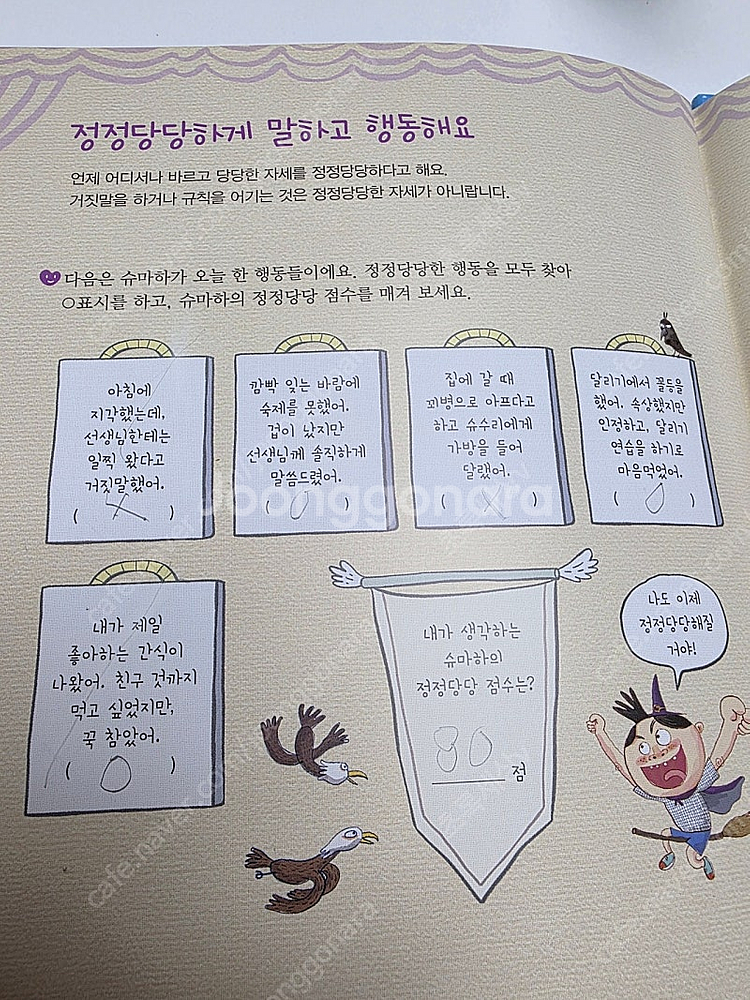 정정당당하게 말하고 행동해요
언제 어디서나 바르고 당당한 자세를 정정당당하다고 해요.
거짓말을 하거나 규칙을 어기는 것은 정정당당한 자세가 아니랍니다.
다음은 슈마하가 오늘 한 행동들이에요. 정정당당한 행동을 모두 찾아
○표시를 하고, 슈마하의 정정당당 점수를 매겨 보세요.
아침에
지각했는데,
선생님한테는
일찍 왔다고
거짓말했어.
( X )
깜빡 잊는 바람에
숙제를 못했어.
겁이 났지만
선생님께 솔직하게
말씀드렸어.
( O )
집에 갈 때
꾀병으로 아프다고
하고 슈수리에게
가방을 들어
달랬어.
( X )
달리기에서 꼴등을
했어. 속상했지만
인정하고, 달리기
연습을 하기로
마음먹었어.
( O )
내가 제일
좋아하는 간식이
나왔어. 친구 것까지
먹고 싶었지만,
꾹 참았어.
( O )
내가 생각하는
슈마하의
정정당당 점수는?
80 점
나도 이제
정정당당해질
거야!
Joonggonara
cafe.naver.com